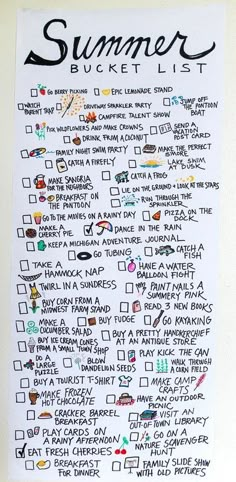 Summer
BUCKET LIST
GO BERRY PICKING EPIC LEMONADE STAND
WATCH PARENT TRAP DRIVEWAY SPARKLER PARTY JUMP OFF THE PONTOON BOAT
CAMPFIRE TALENT SHOW
PICK WILDFLOWERS AND MAKE CROWNS SEND A VACATION POST CARD
DRINK FROM A COCONUT
FAMILY NIGHT SWIM PARTY MAKE THE PERFECT S'MORE
CATCH A FIREFLY LAKE SWIM AT DUSK
MAKE SANGRIA FOR THE NEIGHBORS CATCH A FROG
LIE ON THE GROUND + LOOK AT THE STARS
BREAKFAST ON THE PONTOON RUN THROUGH THE SPRINKLER
GO TO THE MOVIES ON A RAINY DAY PIZZA ON THE DOCK
MAKE A CHERRY PIE DANCE IN THE RAIN
KEEP A MICHIGAN ADVENTURE JOURNAL
GO TUBING CATCH A FISH
TAKE A HAMMOCK NAP HAVE A WATER BALLOON FIGHT
TWIRL IN A SUNDRESS PAINT NAILS A SUMMERY PINK
BUY CORN FROM A MIDWEST FARM STAND READ SOMETHING NEW
MAKE A CUCUMBER SALAD BUY FUDGE GO KAYAKING
BUY ICE CREAM CONES FROM A SMALL TOWN SHOP BUY A PRETTY HANDKERCHIEF AT AN ANTIQUE STORE
DO A LARGE PUZZLE BLOW DANDELION SEEDS PLAY KICK THE CAN
WALK THROUGH A CORN FIELD
BUY A TOURIST T-SHIRT MAKE CAMP CRAFTS
MAKE FROZEN HOT CHOCOLATE HAVE AN OUTDOOR PICNIC
CRACKER BARREL BREAKFAST VISIT AN OUT-OF-TOWN LIBRARY
PLAY CARDS ON A RAINY AFTERNOON GO ON A NATURE SCAVENGER HUNT
EAT FRESH CHERRIES
BREAKFAST FOR DINNER FAMILY SLIDE SHOW WITH OLD PICTURES